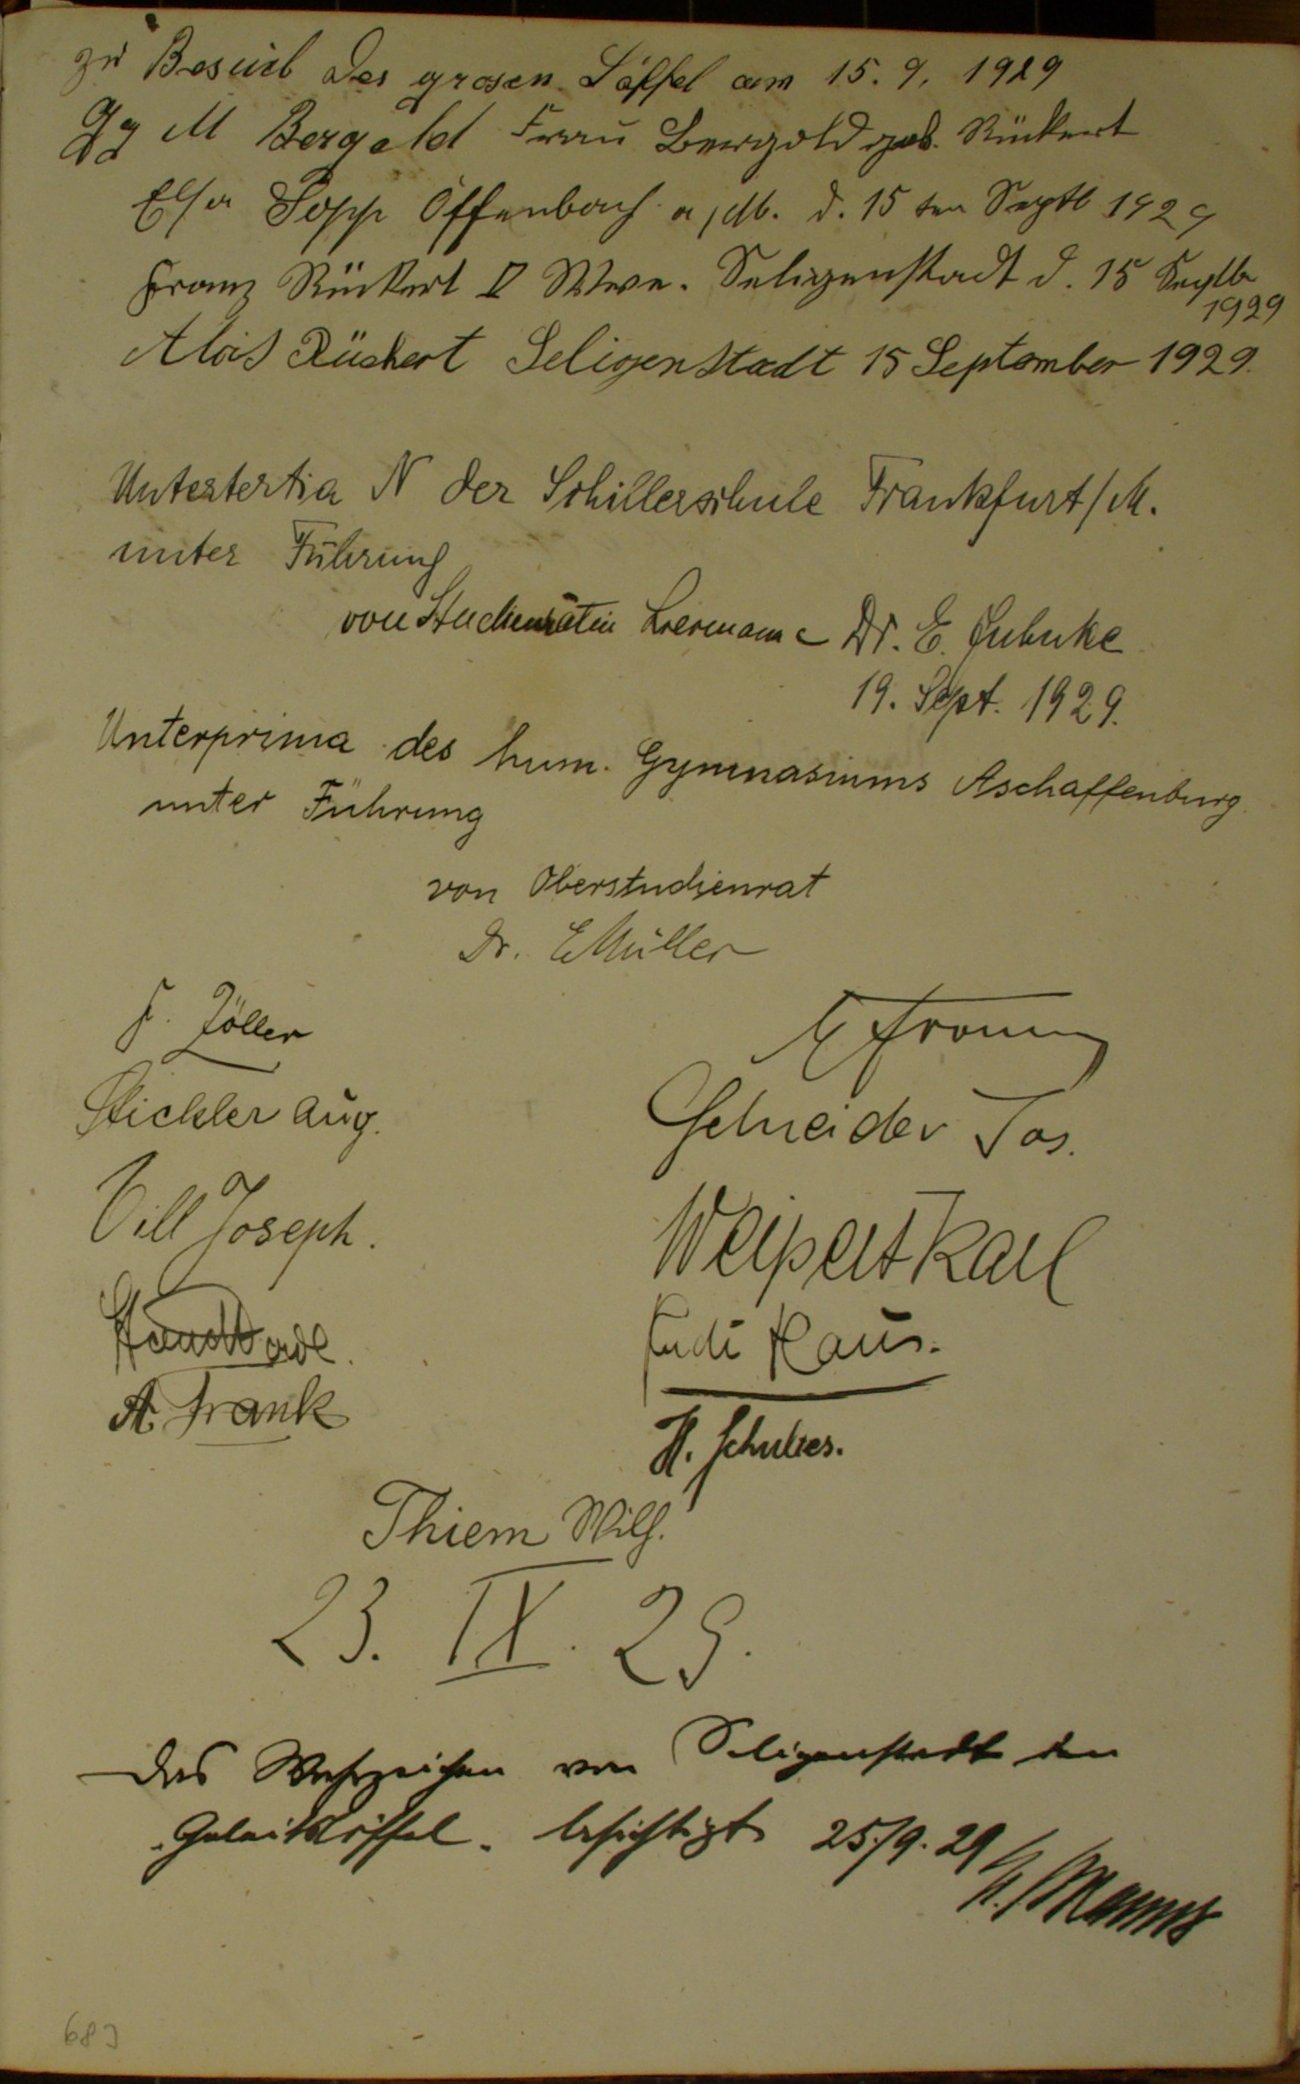 zu Besuch des grosen Löffel am 15. 9. 1929
Gg M Bergold Frau Bergold geb. Rückert
Elsa Popp Offenbach a/M. d. 15 ten Septb 1929
Franz Rückert II Wwe. Seligenstadt d. 15 Septb
1929
Alois Rückert Seligenstadt 15 September 1929.
Untertertia N der Schillerschule Frankfurt/M.
unter Führung
von Studienrätin Dr. E.
19. Sept. 1929.
Unterprima des hum. Gymnasiums Aschaffenburg
unter Führung
von Oberstudienrat
Dr. E Müller
F. Zöller
Stickler Aug.
Vill Joseph.
A. Frank
Schneider Jos.
Weipert Karl
Rudi Haus.
H.
Thiem Wilh.
23. IX. 29.
Das Wahrzeichen von Seligenstadt den
Geleitslöffel. besichtigt 25/9. 29
683